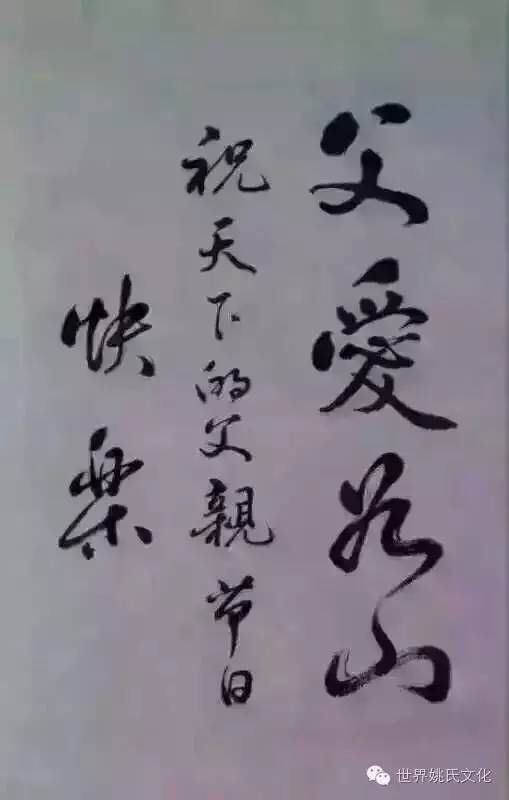 父愛如山
祝天下的父親节日
快樂
世界姚氏文化